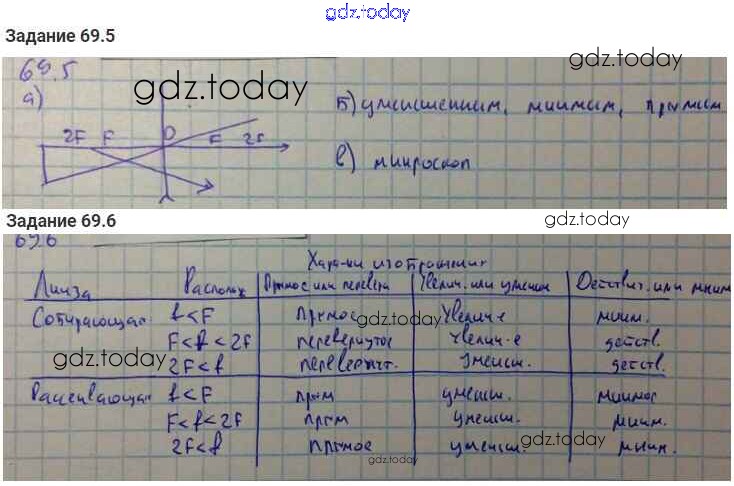 gdz.today
Задание 69.5
gdz.today
69.5
gdz.today
а)
Б) уменьшенным, мнимым, прямым
2F F O F 2F
в) микроскоп
Задание 69.6
gdz.today
69.6
Хар-ки изображения
Линза Располож Прямое или перевёрн Увелич. или уменьш Действит. или мним
Собирающая f<F прямое gdz.today Увелич-е мним.
F<f<2F перевернутое увелич-е действ.
gdz.today 2F<f перевернут. уменьш. действ.
Рассеивающая f<F прям уменьш. мнимое
F<f<2F прям уменьш. мним.
2F<f прямое уменьш. gdz.today мним.
gdz.today